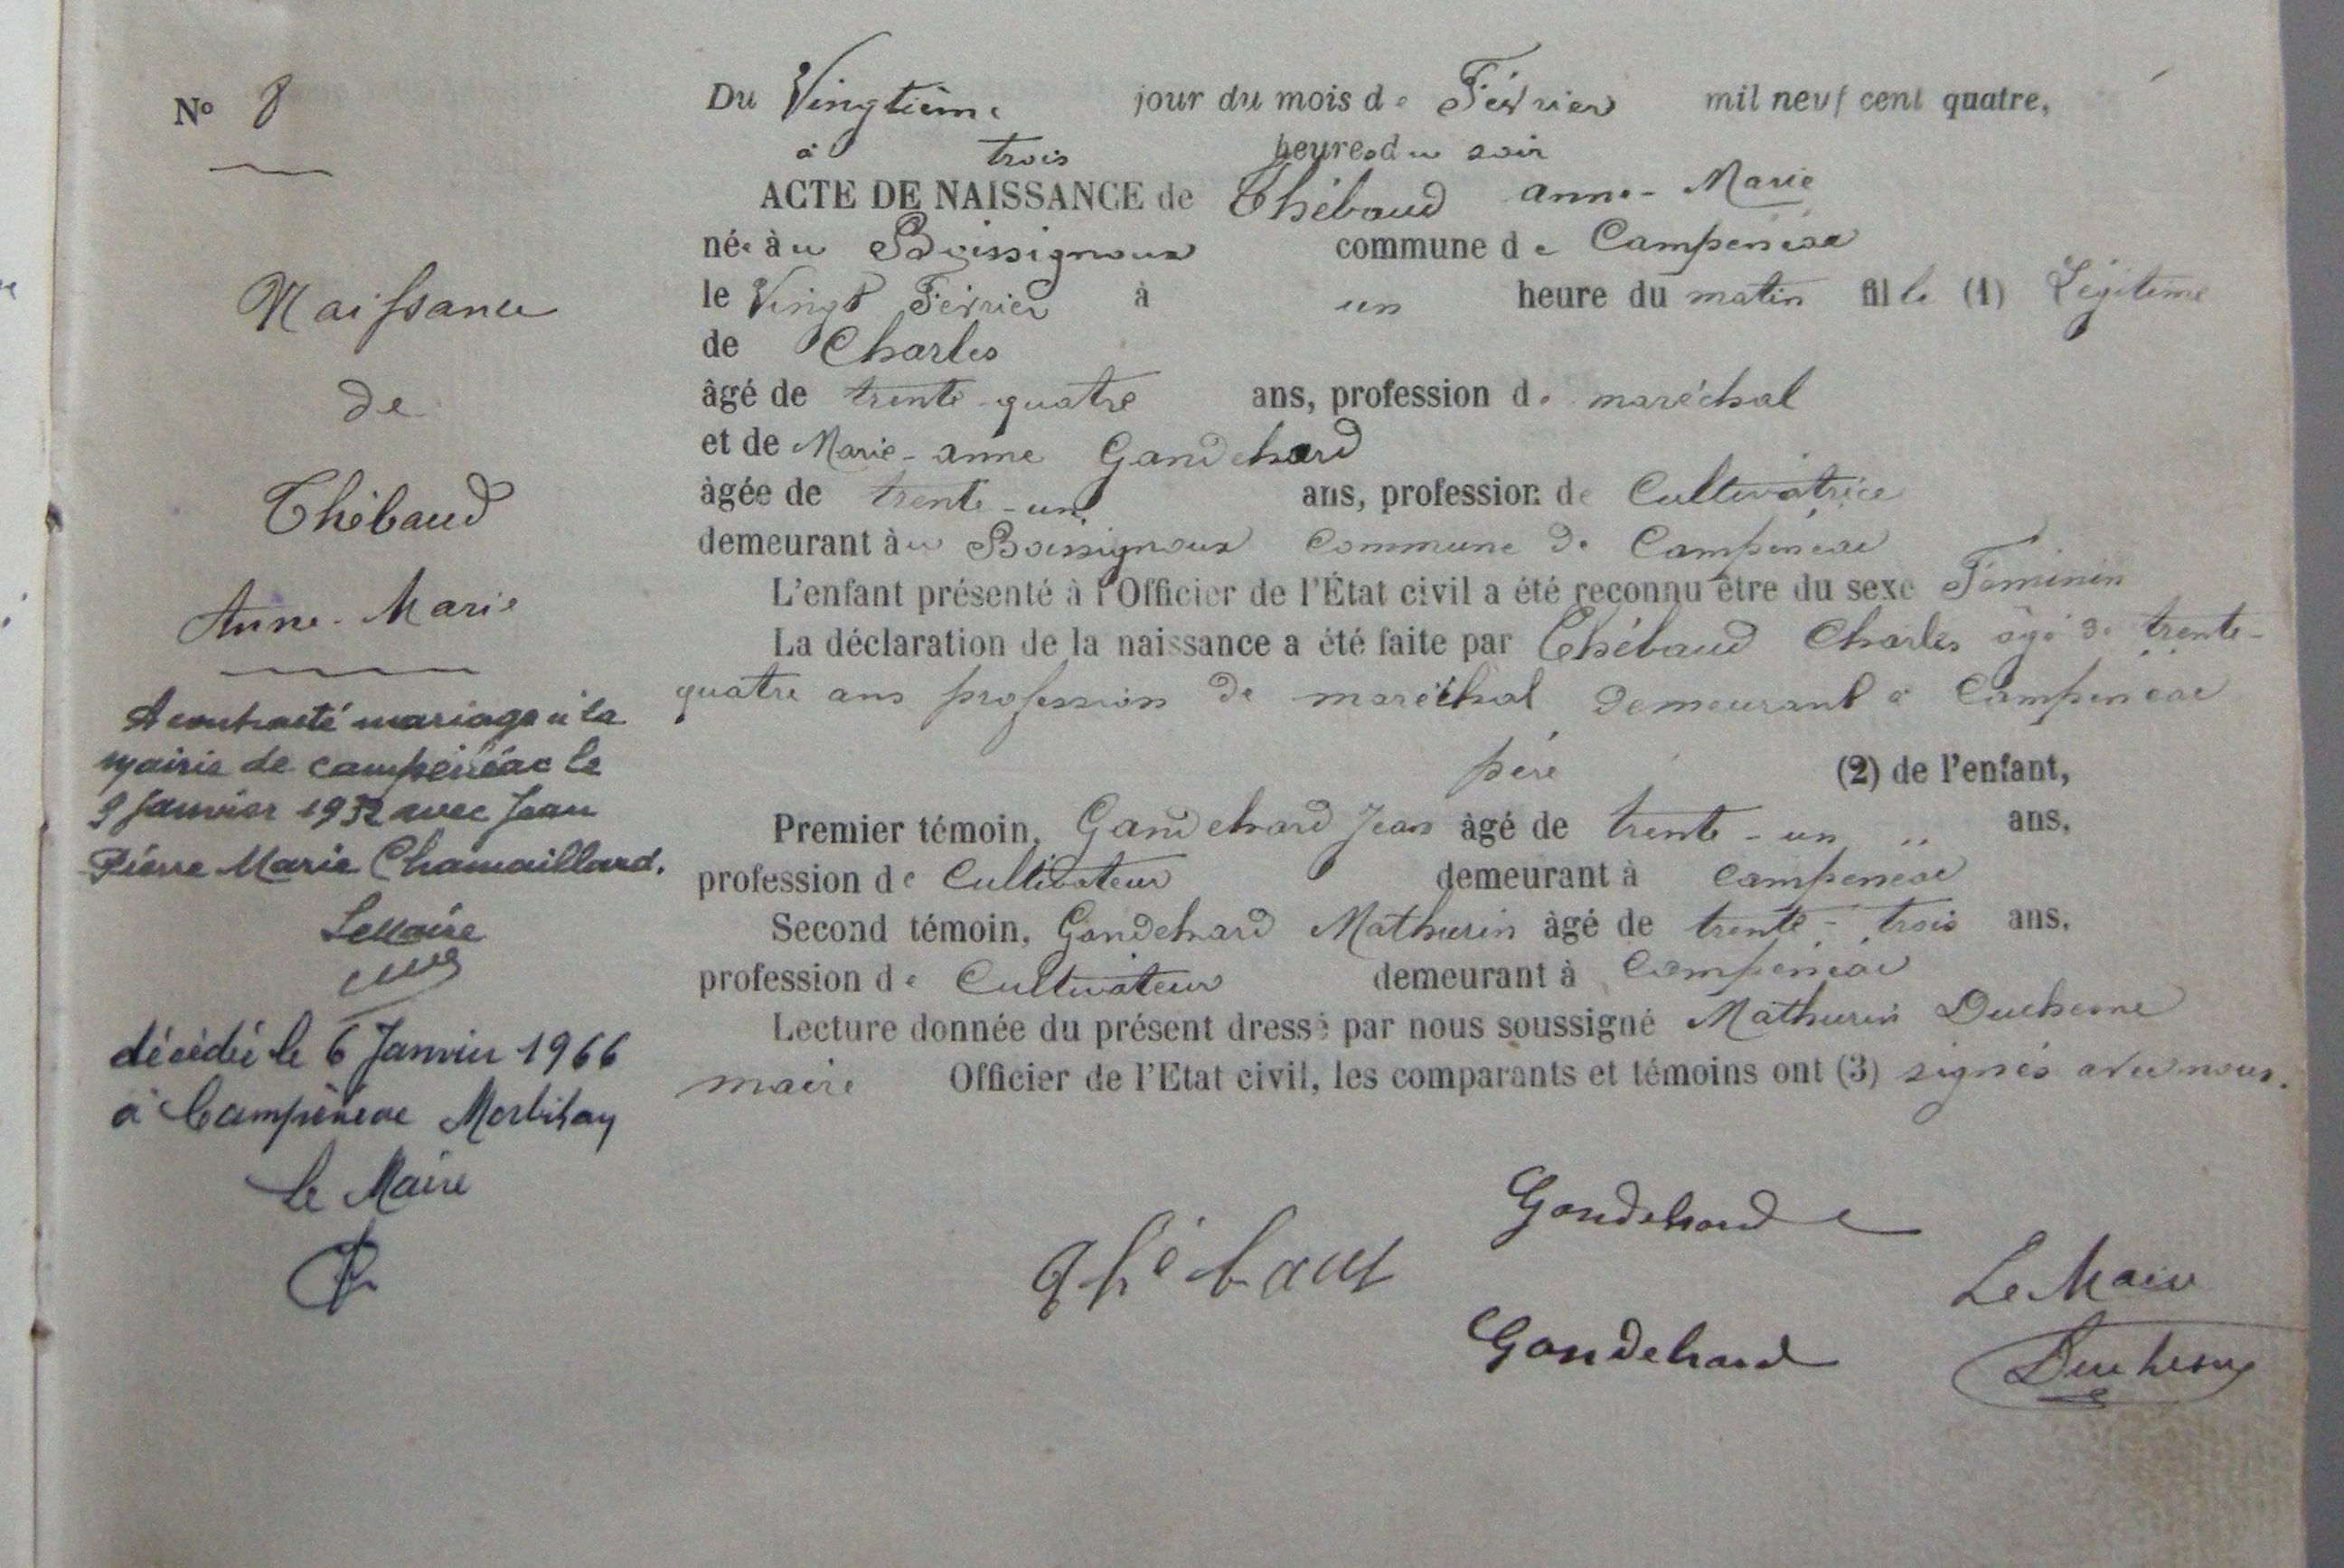 N° 8
Naissance
de
Thébaud
Anne-Marie
A contracté mariage à la
mairie de campénéac le
9 Janvier 1932 avec Jean
Pierre Marie Chamaillard.
Le Maire
décédée le 6 Janvier 1966
à Campénéac Morbihan
Le Maire
Du Vingtième jour du mois de Février mil neuf cent quatre,
à trois heures du soir
ACTE DE NAISSANCE de Thébaud anne-Marie
née à u Boissignoux commune de Campénéac
le Vingt Février à un heure du matin fille (1) Légitime
de Charles
âgé de trente-quatre ans, profession de maréchal
et de Marie-anne Gandehard
âgée de trente-un ans, profession de Cultivatrice
demeurant à u Boissignoux Commune de Campénéac
L'enfant présenté à l'Officier de l'État civil a été reconnu être du sexe Féminin
La déclaration de la naissance a été faite par Thébaud Charles âgé de trente-
quatre ans profession de maréchal demeurant à Campénéac
père (2) de l'enfant,
Premier témoin, Gandehard Jean âgé de trente-un ans,
profession de Cultivateur demeurant à Campénéac
Second témoin, Gandehard Mathurin âgé de trente-trois ans,
profession de Cultivateur demeurant à Campénéac
Lecture donnée du présent dressé par nous soussigné Mathurin Duchesne
maire Officier de l'Etat civil, les comparants et témoins ont (3) signés avec nous.
Gandehard
Thébaut
Le Maire
Gandehard
Duchesne